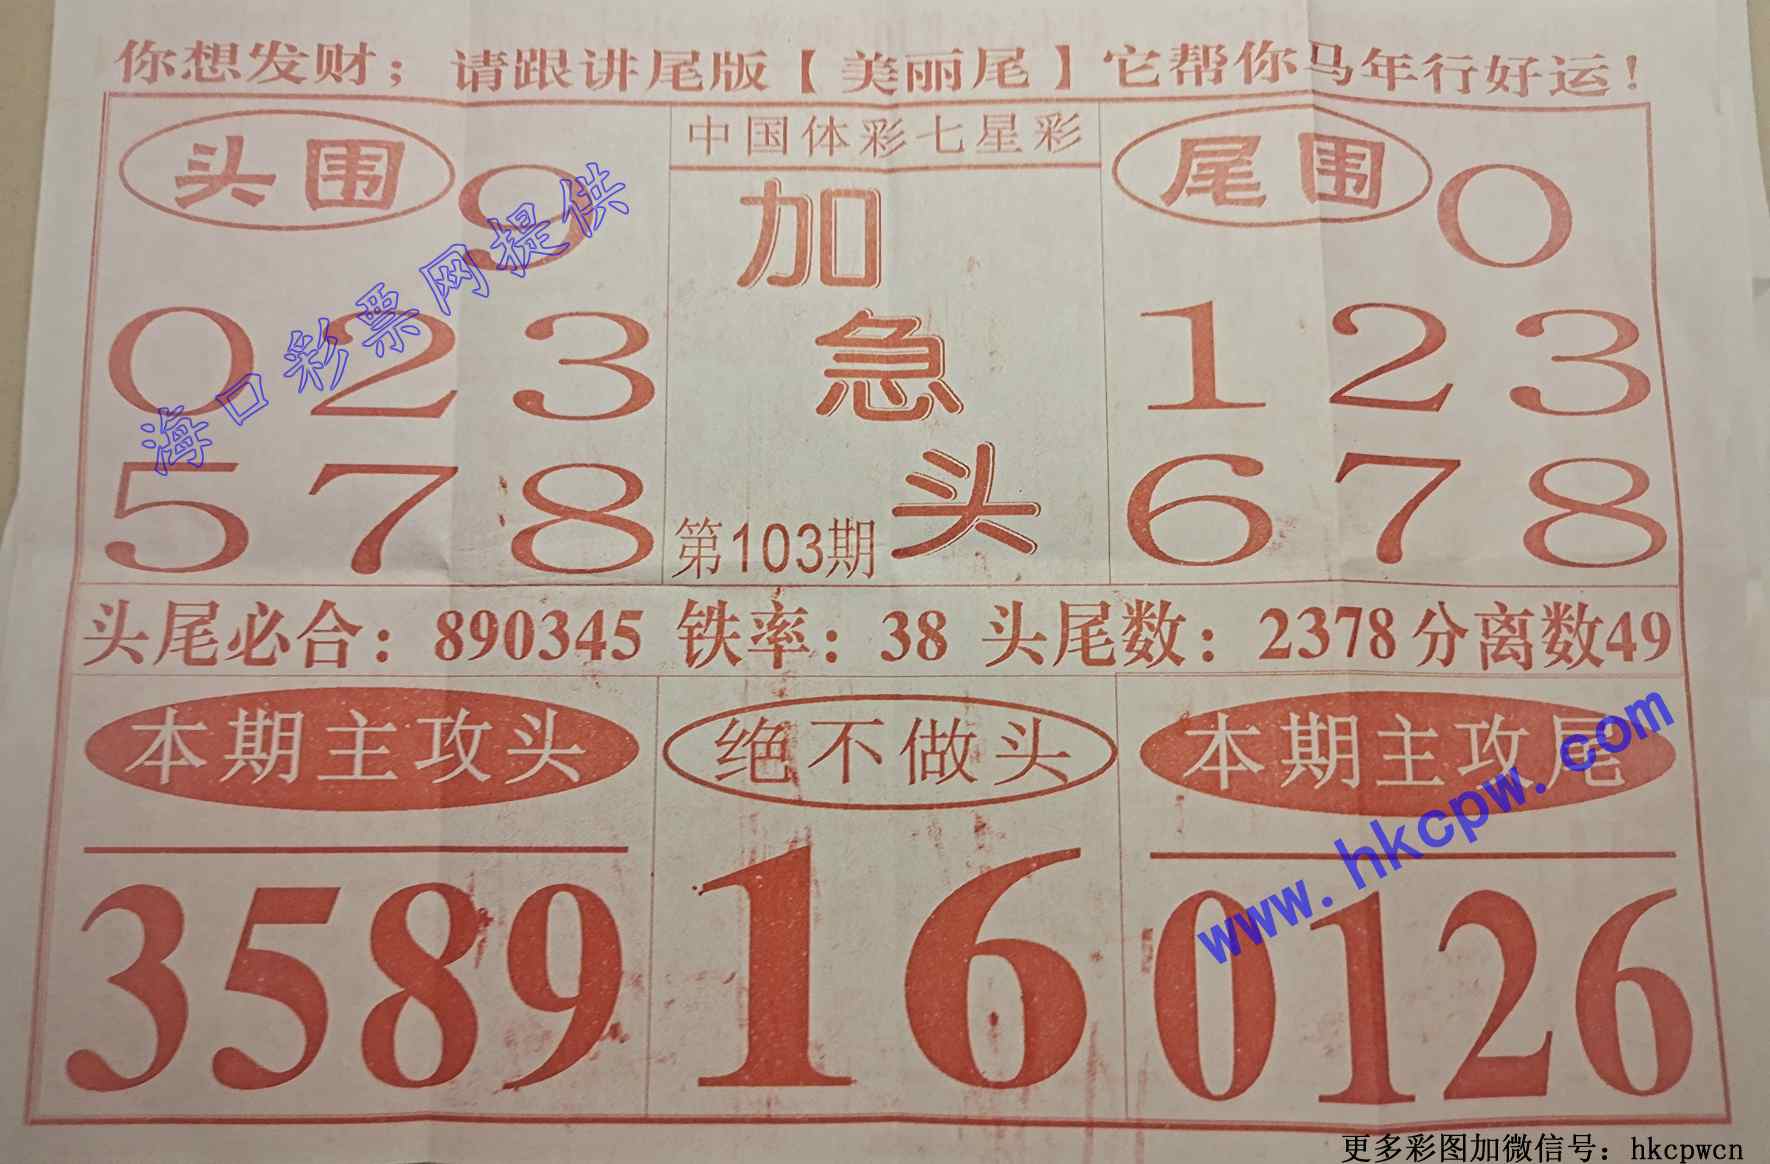 你想发财；请跟讲尾版【美丽尾】它帮你马年行好运！
中国体彩七星彩
头围 9
0 2 3
5 7 8
加
急
头
第103期
尾围 0
1 2 3
6 7 8
头尾必合：890345 铁率：38 头尾数：2378 分离数49
本期主攻头
3589
绝不做头
16
本期主攻尾
0126
海口彩票网提供
www.hkcpw.com
更多彩图加微信号：hkcpwcn